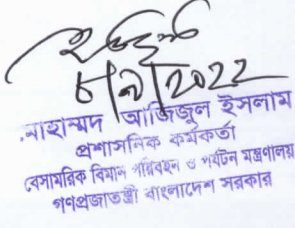 ৮/৯/2022
মোহাম্মদ আজিজুল ইসলাম
প্রশাসনিক কর্মকর্তা
বেসামরিক বিমান পরিবহন ও পর্যটন মন্ত্রণালয়
গণপ্রজাতন্ত্রী বাংলাদেশ সরকার